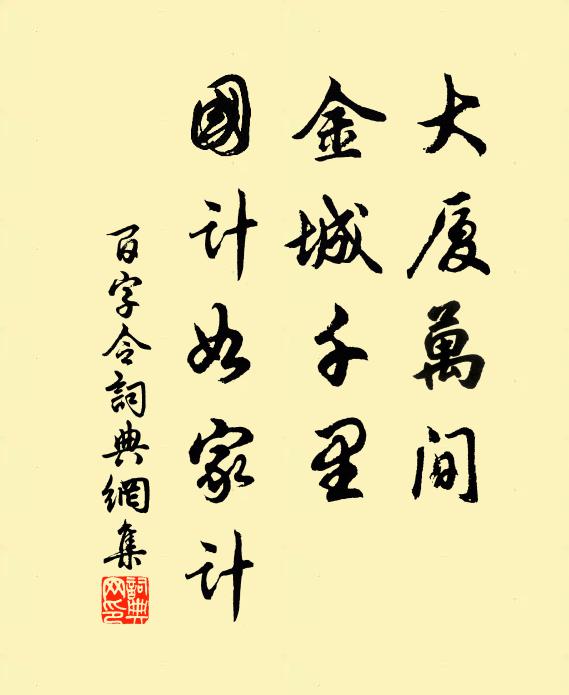 大厦萬间
金城千里
國计如家计
百字令詞典網集
詞典
网印